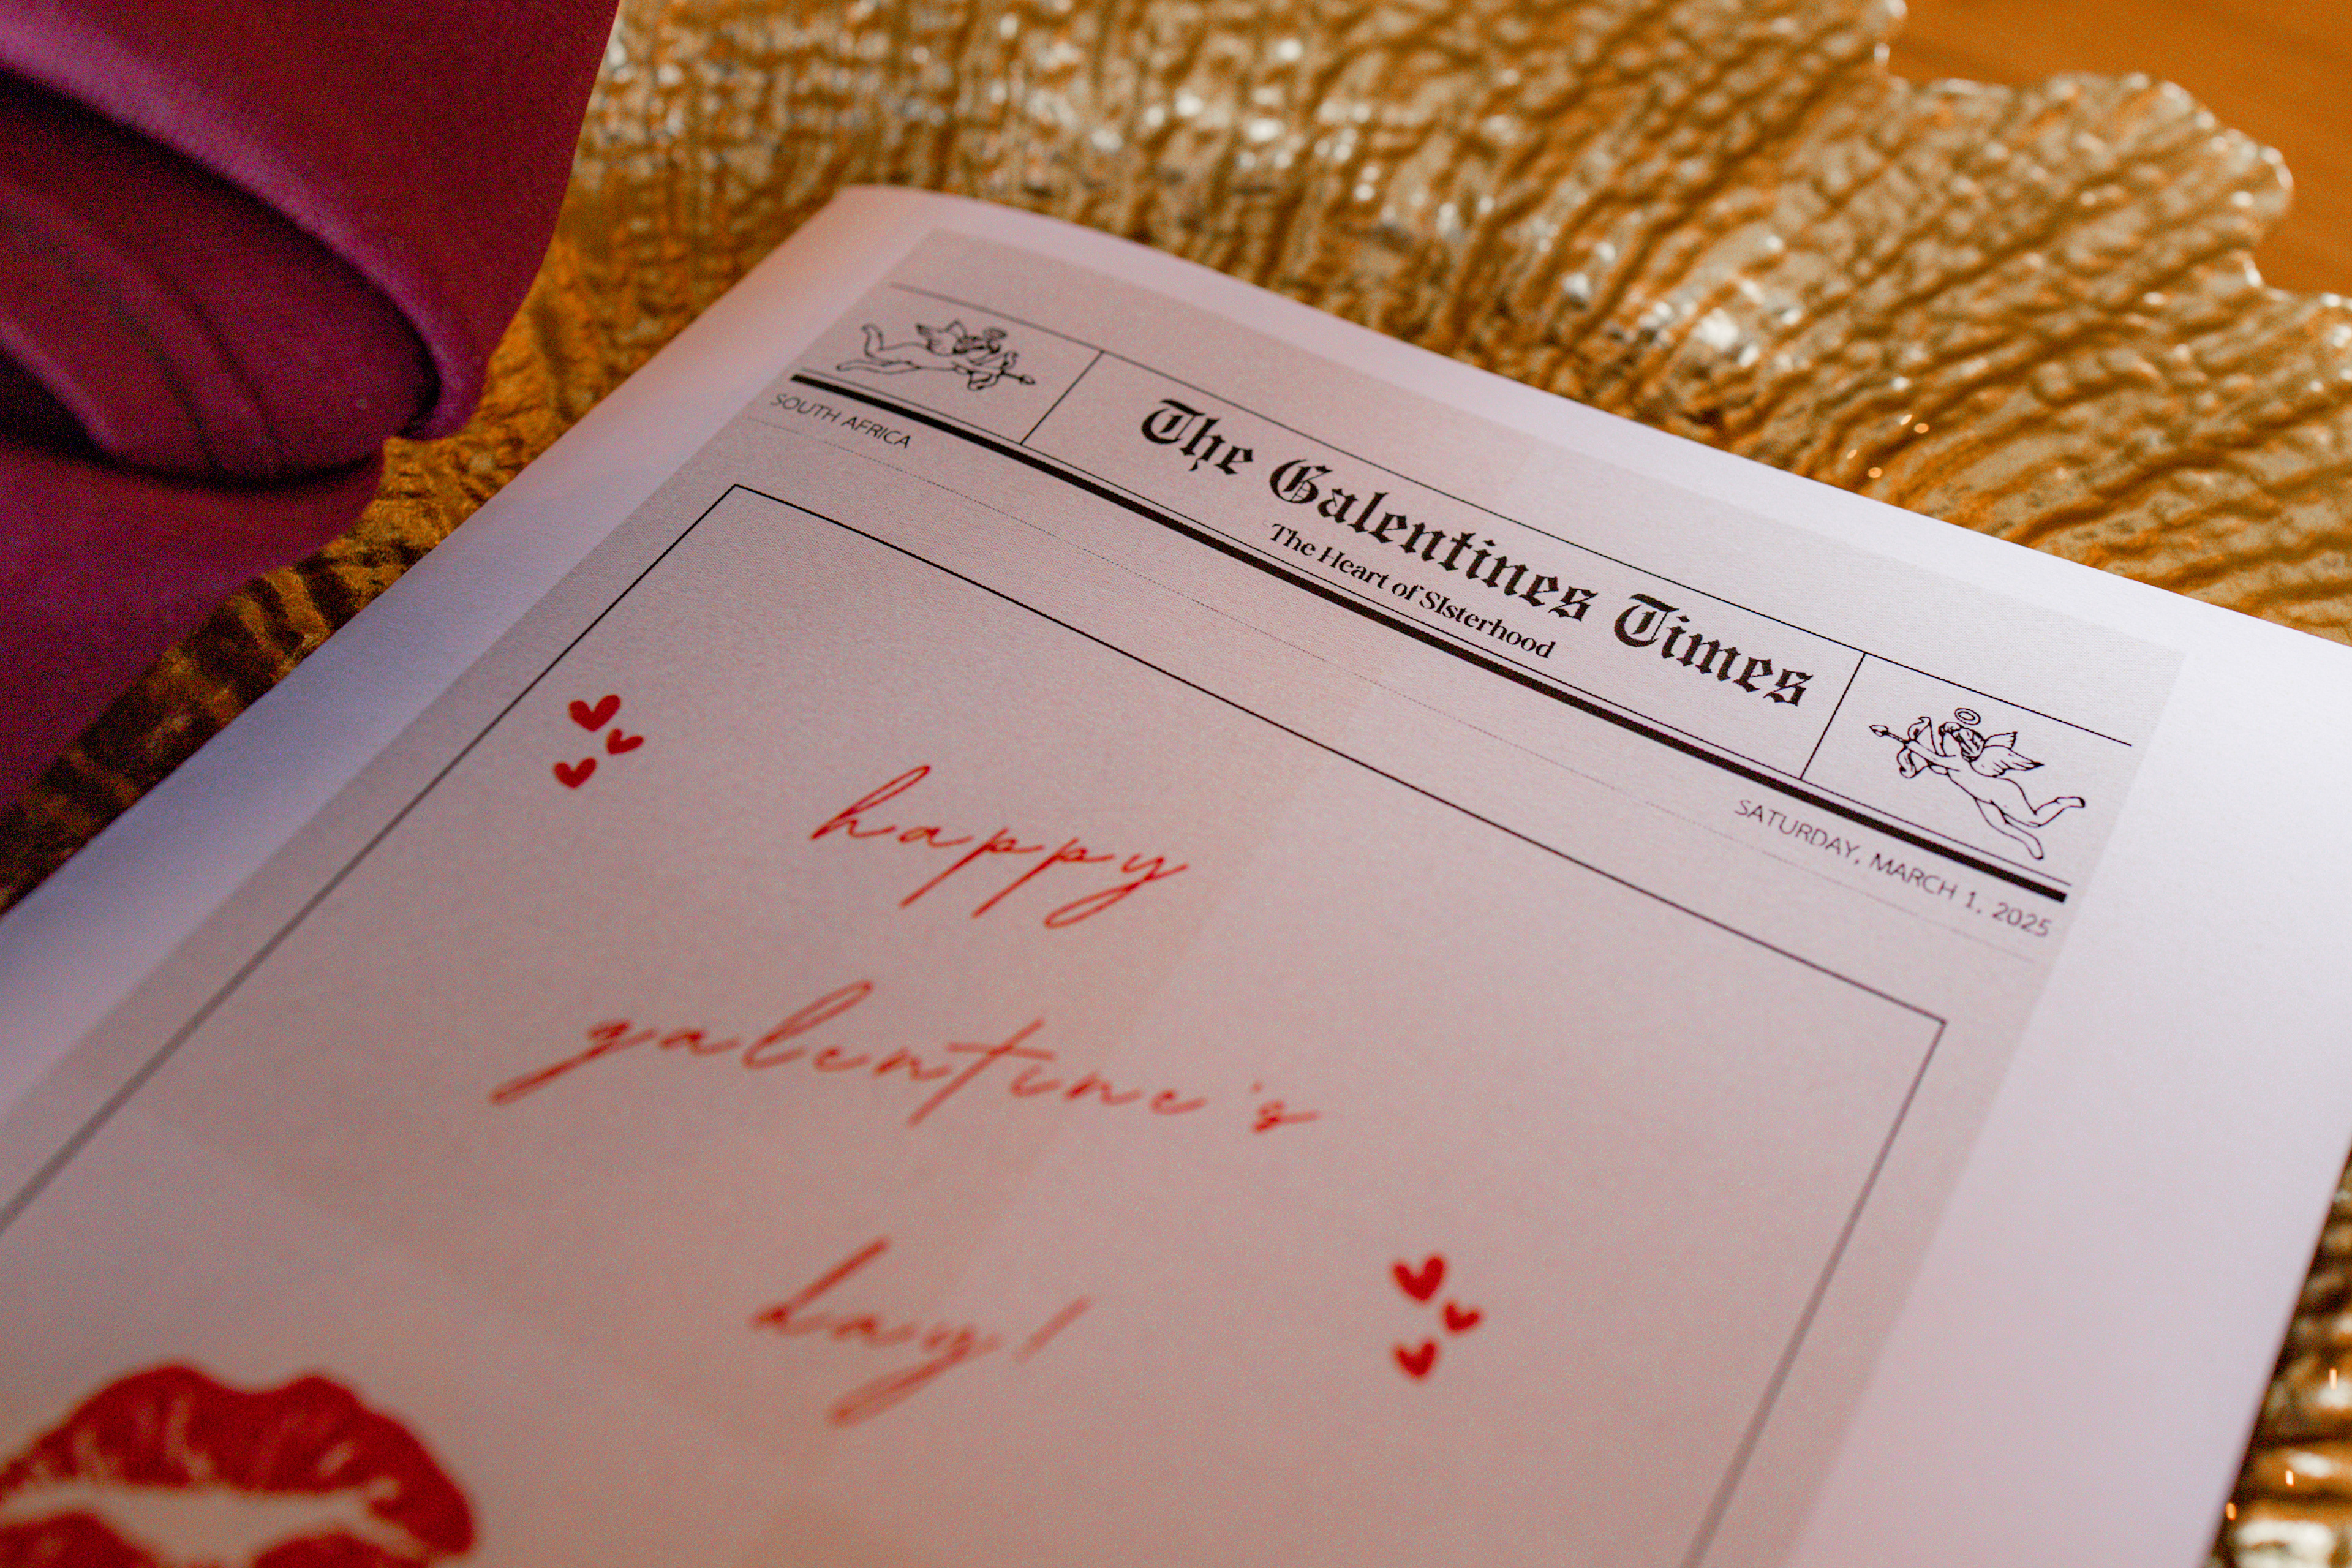 The Galentines Times
The Heart of SIsterhood
SOUTH AFRICA
SATURDAY, MARCH 1, 2025
happy
galentine's
day!